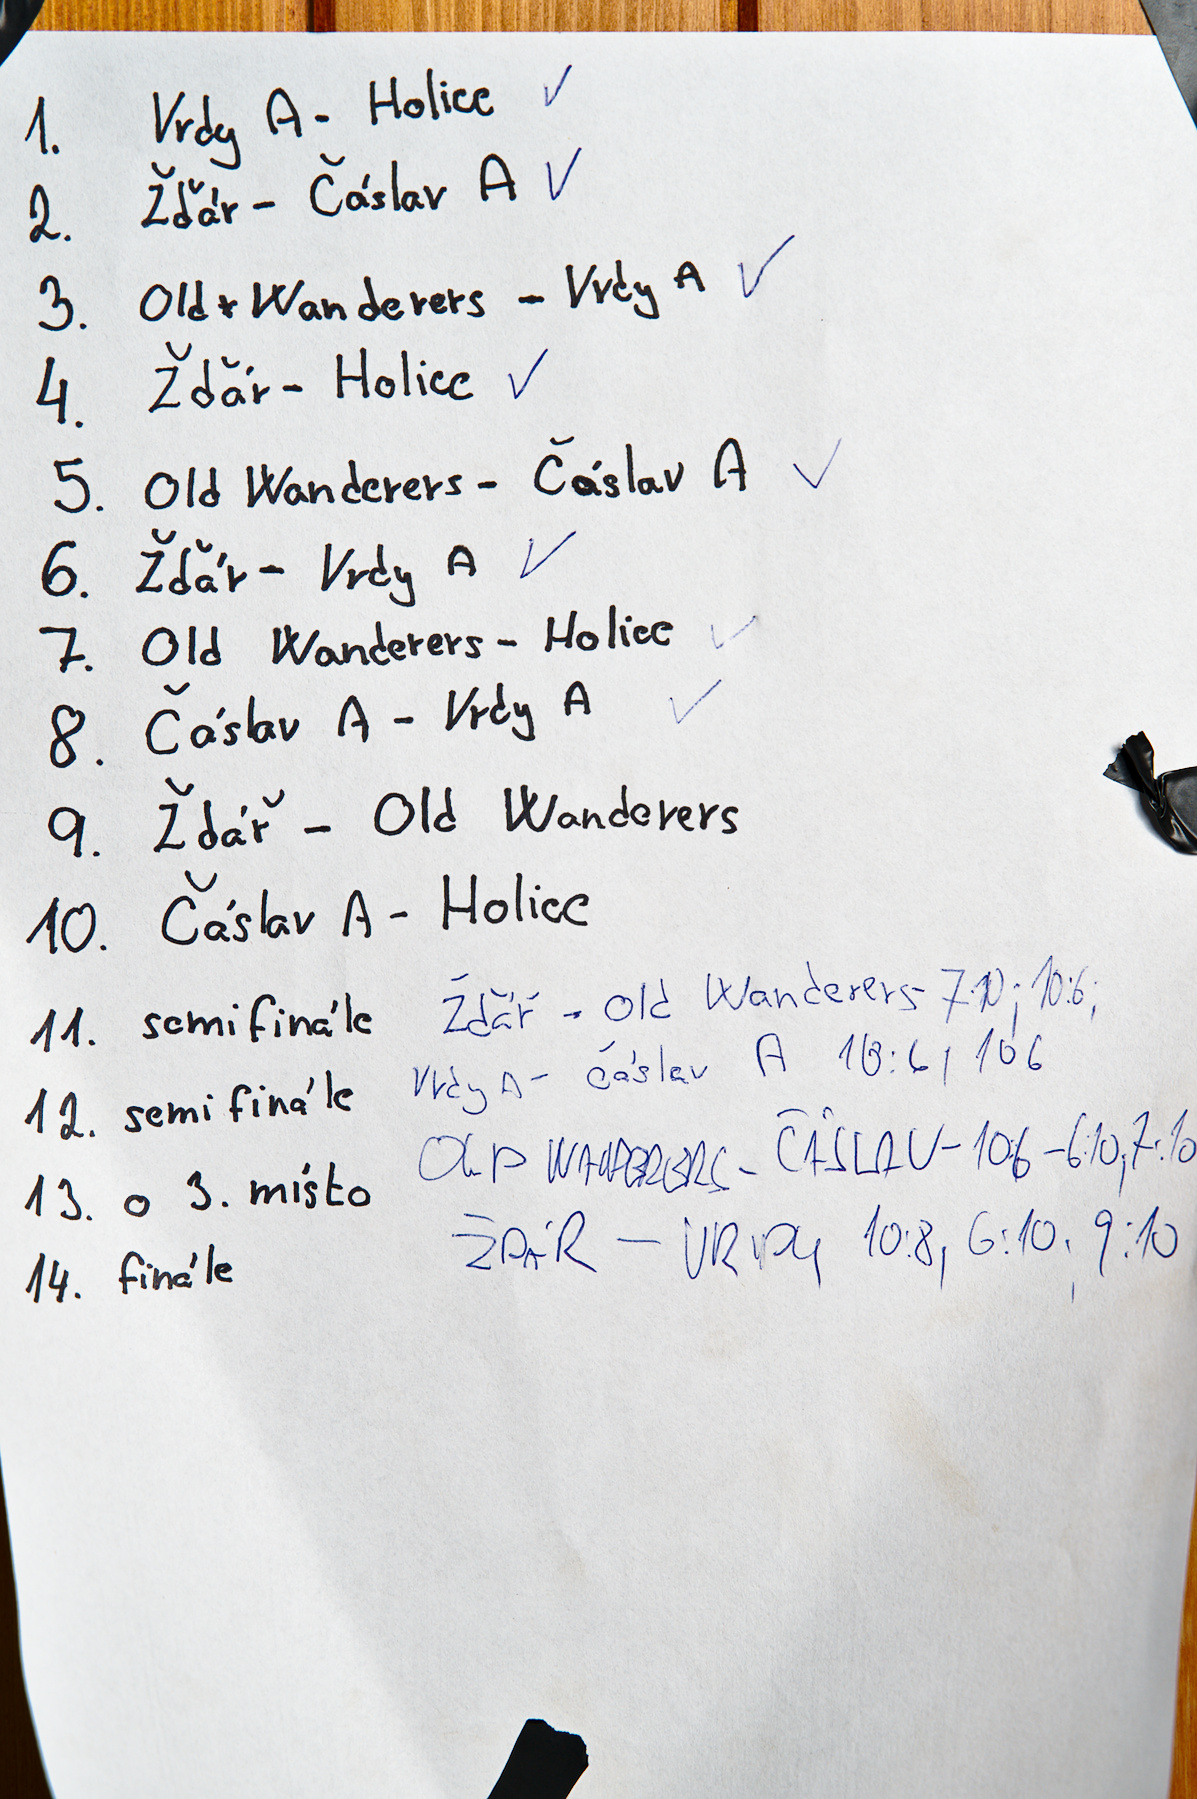 1. Vrdy A - Holice ✓
2. Žďár - Čáslav A ✓
3. Old Wanderers - Vrdy A ✓
4. Žďár - Holice ✓
5. Old Wanderers - Čáslav A ✓
6. Žďár - Vrdy A ✓
7. Old Wanderers - Holice ✓
8. Čáslav A - Vrdy A ✓
9. Ždář - Old Wanderers
10. Čáslav A - Holice
11. semifinále Žďář - Old Wanderers 7:10; 10:6;
12. semifinále Vrdy A - Čáslav A 10:6, 106
13. o 3. místo OLD WANDERERS - ČÁSLAV - 10:6 - 6:10, 7:10
14. finále ŽDÁR - VRDY 10:8, 6:10, 9:10